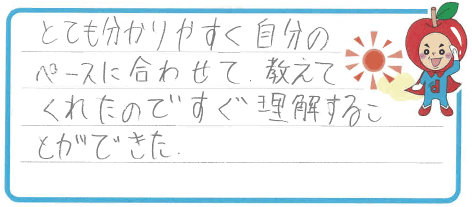 とても分かりやすく自分の
ペースに合わせて、教えて
くれたのですぐ理解するこ
とができた.
d